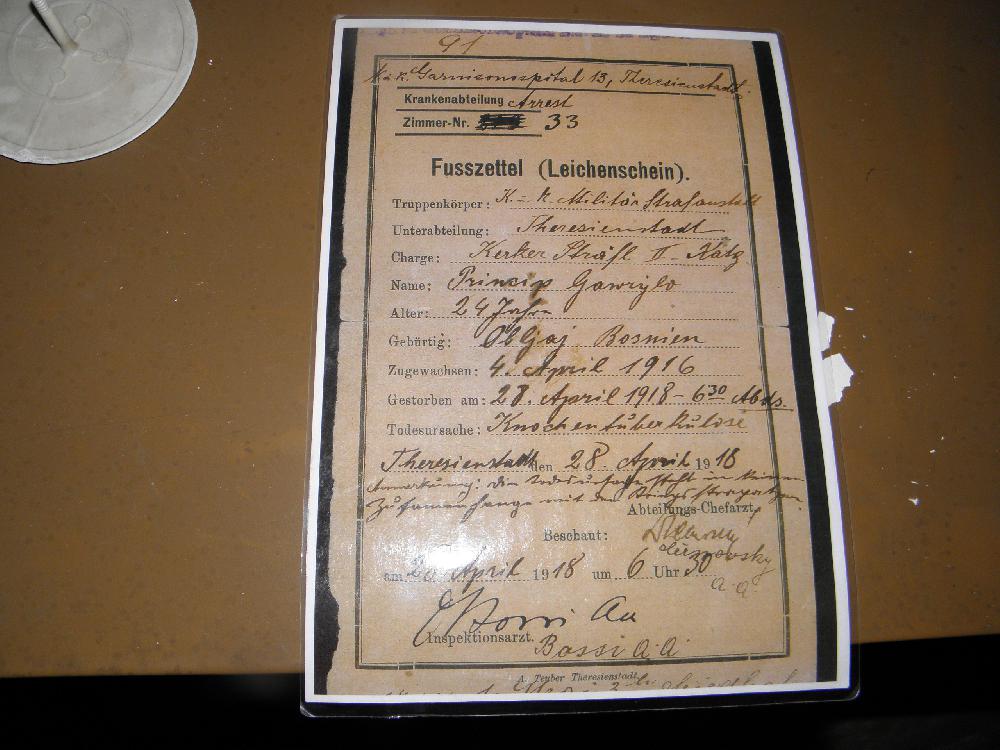 91
K.u.K. Garnisonsspital 13, Theresienstadt.
Krankenabteilung Arrest
Zimmer-Nr. 33
Fusszettel (Leichenschein).
Truppenkörper: K.-k. Militär Strafanstalt
Unterabteilung: Theresienstadt
Charge: Kerker Sträfl II-Katg
Name: Princip Gawrylo
Alter: 24 Jahre
Gebürtig: Obljaj Bosnien
Zugewachsen: 4. April 1916
Gestorben am: 28. April 1918 - 6 30 Abds.
Todesursache: Knochentuberkulose
Theresienstadt den 28 April 1918
Anmerkung: die Todesursache steht in keinem
Zusammenhange mit den Kriegsstrapazen
Abteilungs-Chefarzt,
Beschaut:
am April 1918 um 6 Uhr 30
a. a.
Inspektionsarzt.
Bassi a. a.
A. Teuber Theresienstadt.